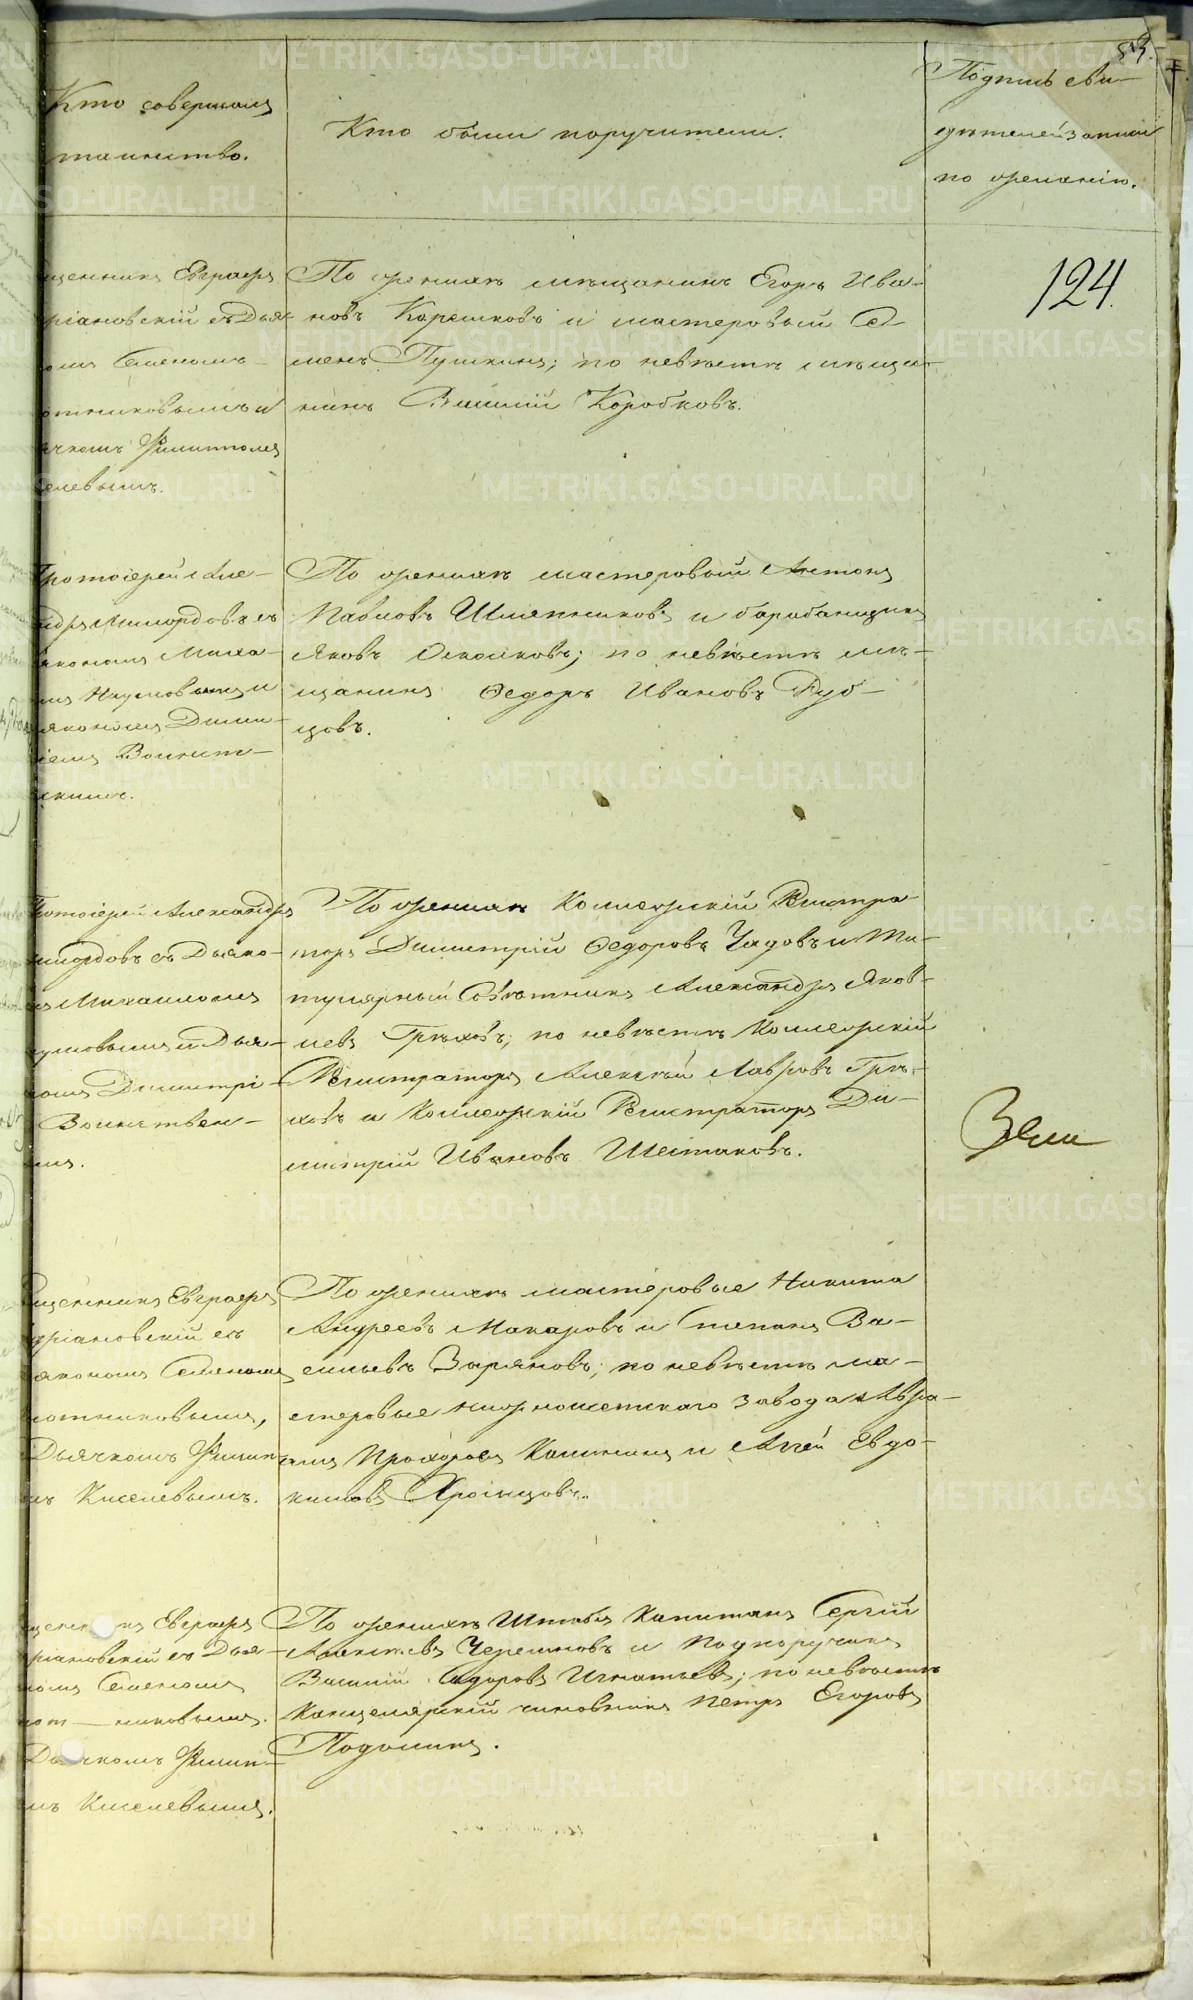 53.
Кто совершалъ
таинство.
Кто были поручители.
Подпись сви-
дѣтелей записи
по желанію.
124.
щенникъ Евграфъ
ріановскій съ Дья-
омъ Семеномъ
отниковымъ и
ячкомъ Филиппомъ
елевымъ.
По женихѣ мѣщанинъ Егоръ Ива-
новъ Корешковъ и мастеровый Се-
менъ Пушкинъ; по невѣстѣ мѣща-
нинъ Василій Коробковъ.
Протоіерей Алек-
ндръ Милордовъ съ
яконом Миха-
мъ Наумовымъ и
якономъ Дими-
іемъ Воинст-
скимъ.
По женихѣ мастеровый Антонъ
Павловъ Шляпниковъ и барабанщикъ
Яковъ Осколковъ; по невѣстѣ мѣ-
щанинъ Ѳедоръ Ивановъ Руб-
цовъ.
Протоіерей Александръ
Милордовъ съ Дьяко-
Михаиломъ
умовымъ и Дья-
номъ Димитрі-
Воинствен-
мъ.
По женихѣ Коллежскій Регистра-
торъ Димитрій Ѳедоровъ Чадовъ и Ти-
тулярный Совѣтникъ Александръ Яков-
левъ Грѣховъ; по невѣстѣ Коллежскій
Регистраторъ Алексѣй Лавровъ Грѣ-
ховъ и Коллежскій Регистраторъ Ди-
митрій Ивановъ Шестаковъ.
щенникъ Евграфъ
дріановскій съ
якономъ Семеномъ
отниковымъ,
Дьячкомъ Филип-
мъ Киселевымъ.
По женихѣ мастеровые Никита
Андреевъ Макаровъ и Степанъ Ва-
сильевъ Зыряновъ; по невѣстѣ ма-
стеровые завода Авра-
амъ Прохоровъ Калининъ и Агѣй Евдо-
кимовъ Храмцовъ.
щенникъ Евграфъ
ріановскій съ Дья-
номъ Семеномъ
лот-никовымъ.
Дьячкомъ Филип-
мъ Киселевымъ.
По женихѣ Штабсъ Капитанъ Сергій
Алексѣевъ Черемновъ и Подпоручикъ
Василій Сидоровъ Игнатьевъ; по невѣстѣ
Канцелярскій чиновникъ Петръ Егоровъ
METRIKI.GASO-URAL.RU